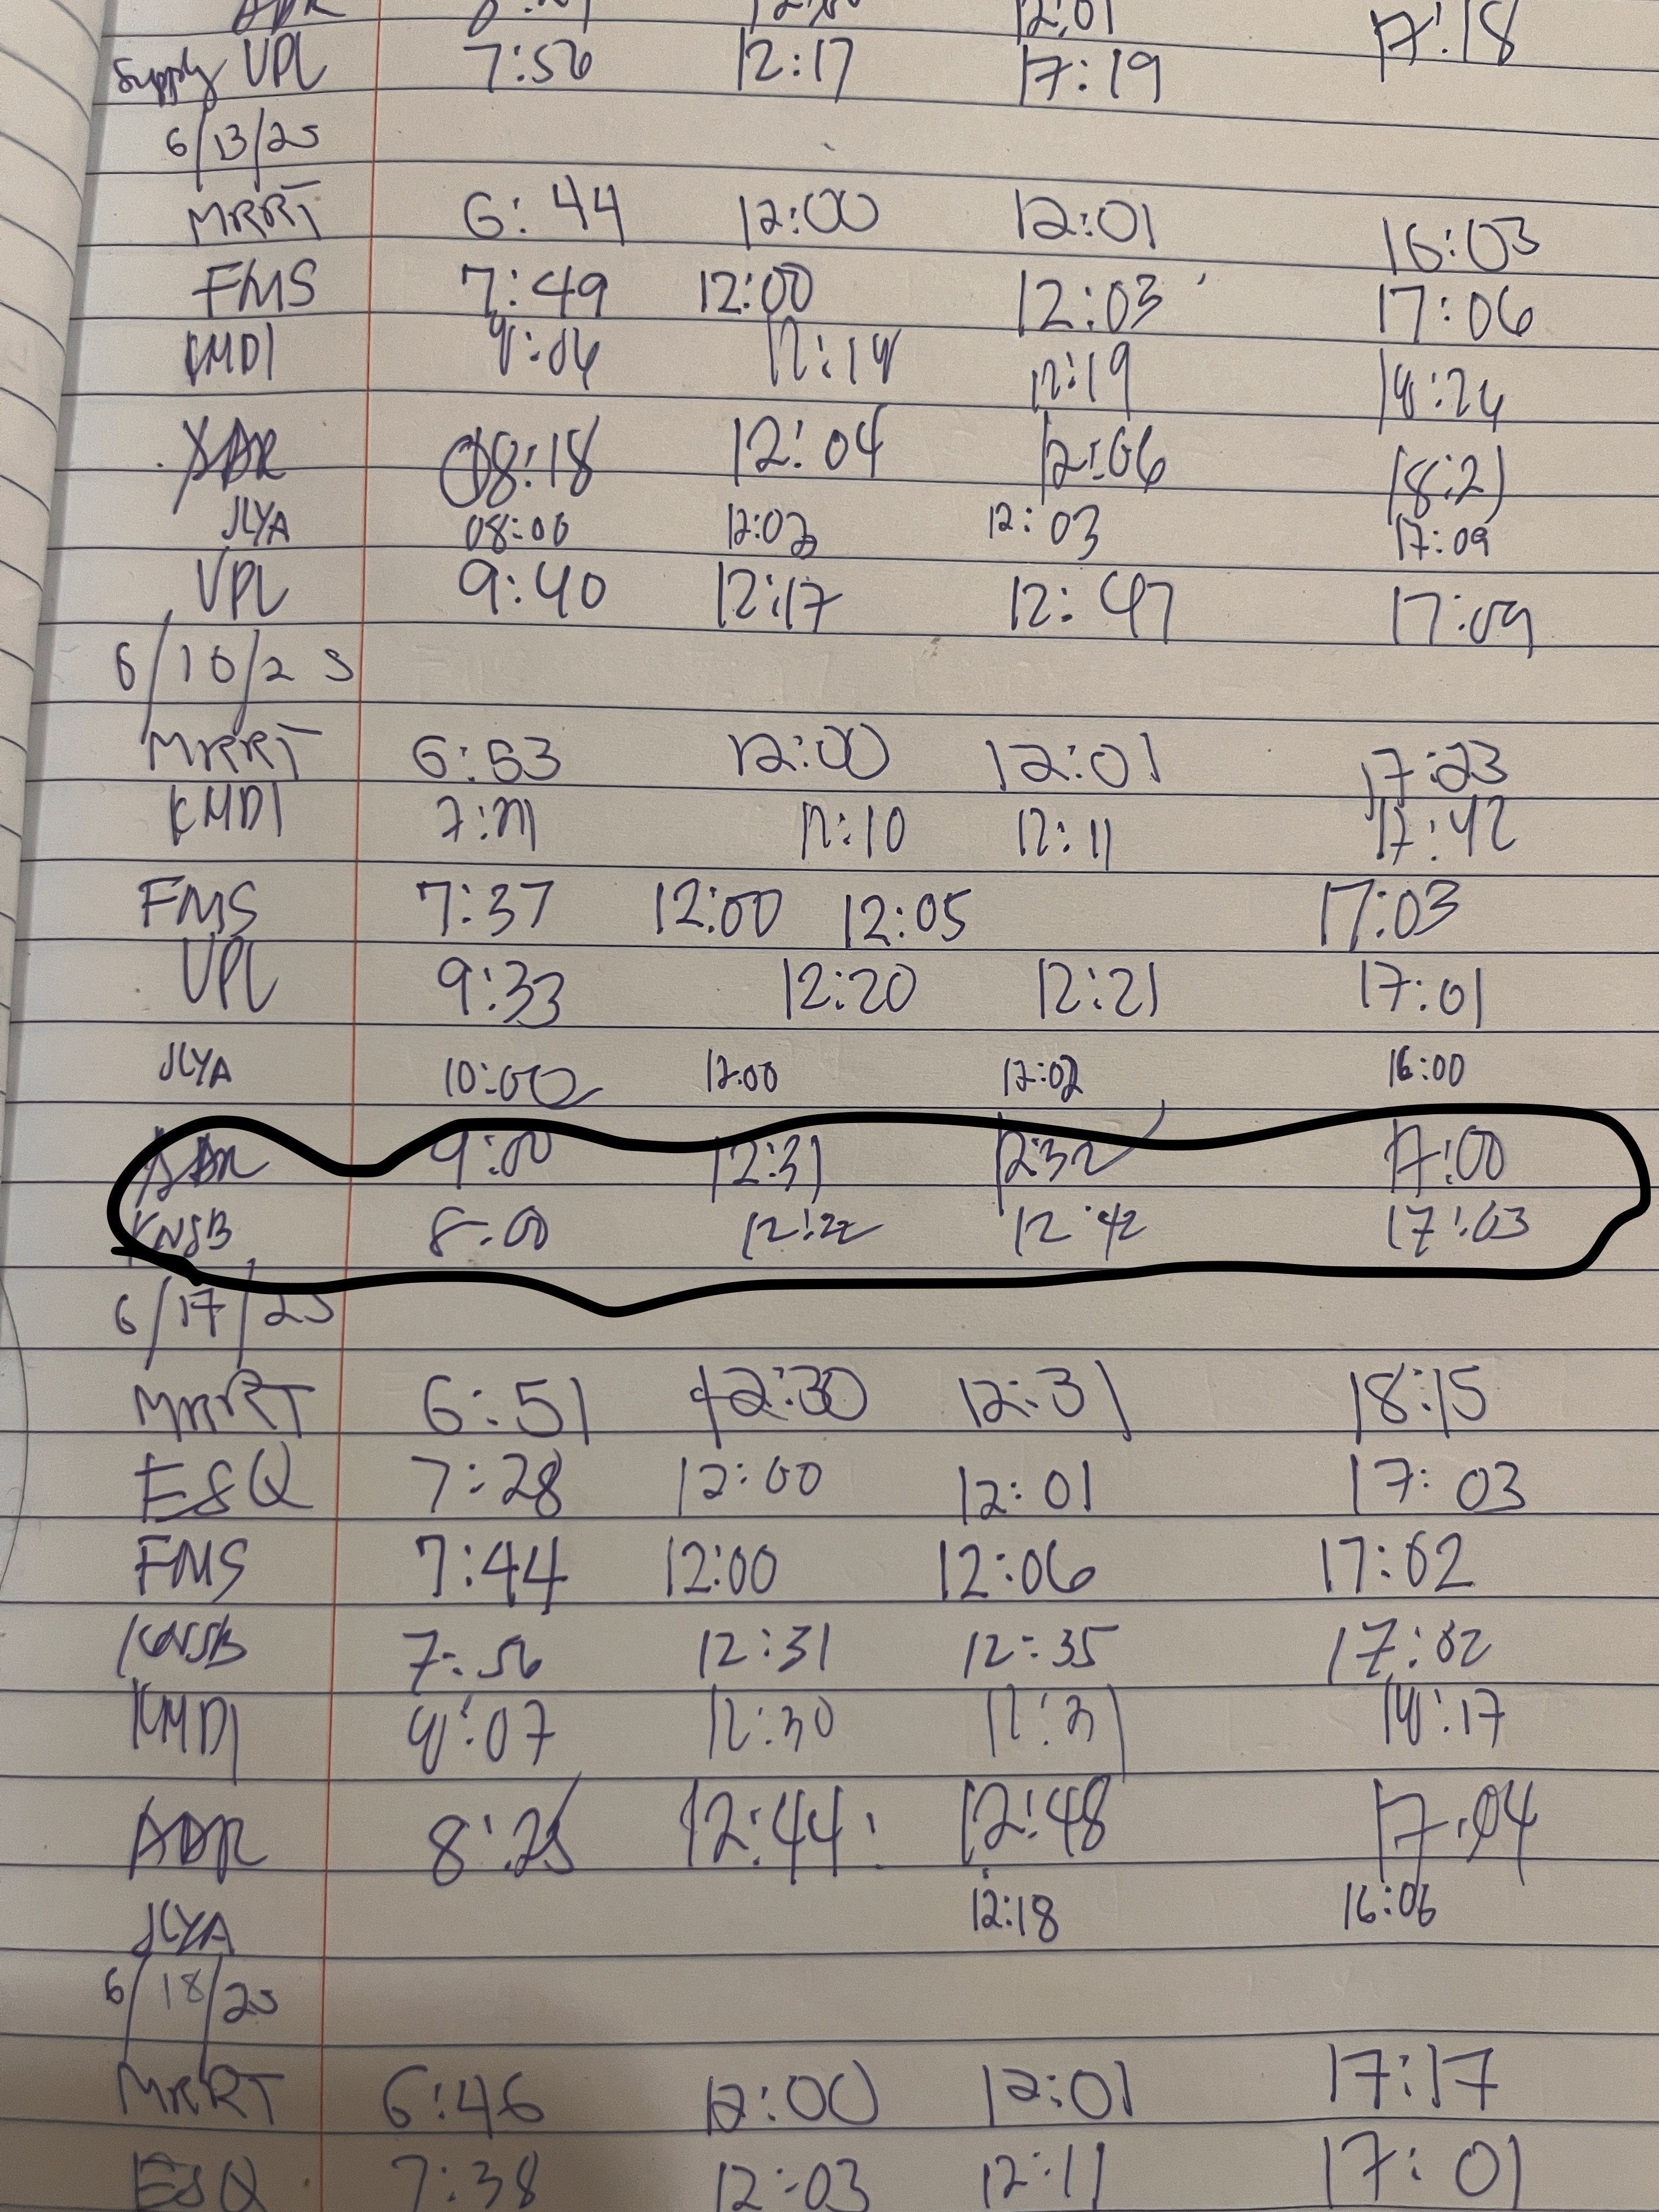 12:01 17:18
Supply VPL 7:56 12:17 17:19
6/13/25
MRRT 6:44 12:00 12:01 16:03
FMS 7:49 12:00 12:03 17:06
KMDI 8:06 12:18 12:19 18:24
ADR 08:18 12:04 12:06 18:21
JLYA 08:00 12:02 12:03 17:09
VPL 9:40 12:17 12:47 17:09
6/16/25
MRRT 6:53 12:00 12:01 17:23
KMDI 12:10 12:11 17:42
FMS 7:37 12:00 12:05 17:03
VPL 9:33 12:20 12:21 17:01
JLYA 10:00 12:00 12:02 16:00
ADR 9:00 12:31 12:32 17:00
KNSB 8:00 12:22 12:42 17:03
6/17/25
MRRT 6:51 12:30 12:31 18:15
ESQ 7:28 12:00 12:01 17:03
FMS 7:44 12:00 12:06 17:02
KNSB 7:56 12:31 12:35 17:02
KMDI 8:07 12:30 12:31 18:17
ADR 8:25 12:44 12:48 17:04
JLYA 12:18 16:06
6/18/25
MRRT 6:46 12:00 12:01 17:17
ESQ 7:38 12:03 12:11 17:01